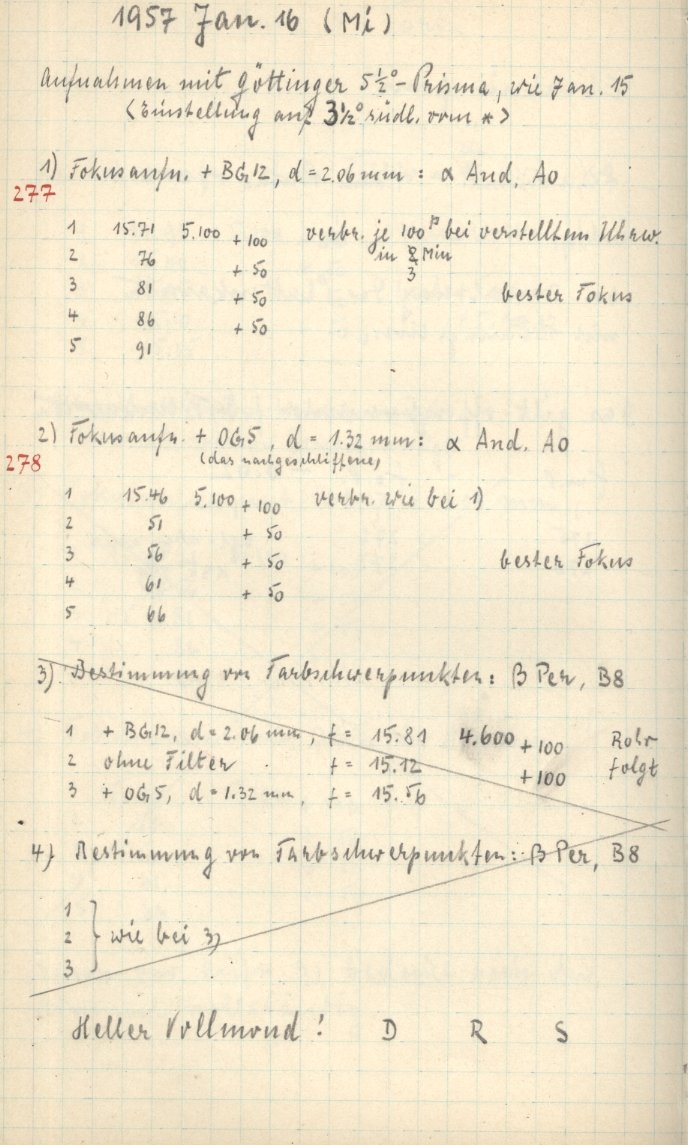 1957 Jan. 16 (Mi)
Aufnahmen mit Göttinger 5½°-Prisma, wie Jan. 15
(Einstellung auf 3½° südl. vom *)
1) Fokusaufn. + BG12, d = 2.06 mm : α And, A0
277
1 15.71 5.100 + 100 verbr. je 100ᵖ bei verstelltem Uhrw.
2 76 + 50 in 2 Min
3
3 81 + 50 bester Fokus
4 86 + 50
5 91
2) Fokusaufn. + OG5, d = 1.32 mm : α And. A0
278 (das nachgeschliffene)
1 15.46 5.100 + 100 verbr. wie bei 1)
2 51 + 50
3 56 + 50 bester Fokus
4 61 + 50
5 66
3) Bestimmung von Farbschwerpunkten : β Per, B8
1 + BG12, d = 2.06 mm, f = 15.81 4.600 + 100 Rohr
2 ohne Filter f = 15.12 + 100 folgt
3 + OG5, d = 1.32 mm, f = 15.56
4) Bestimmung von Farbschwerpunkten : β Per, B8
1
2 } wie bei 3)
3
Heller Vollmond ! D R S